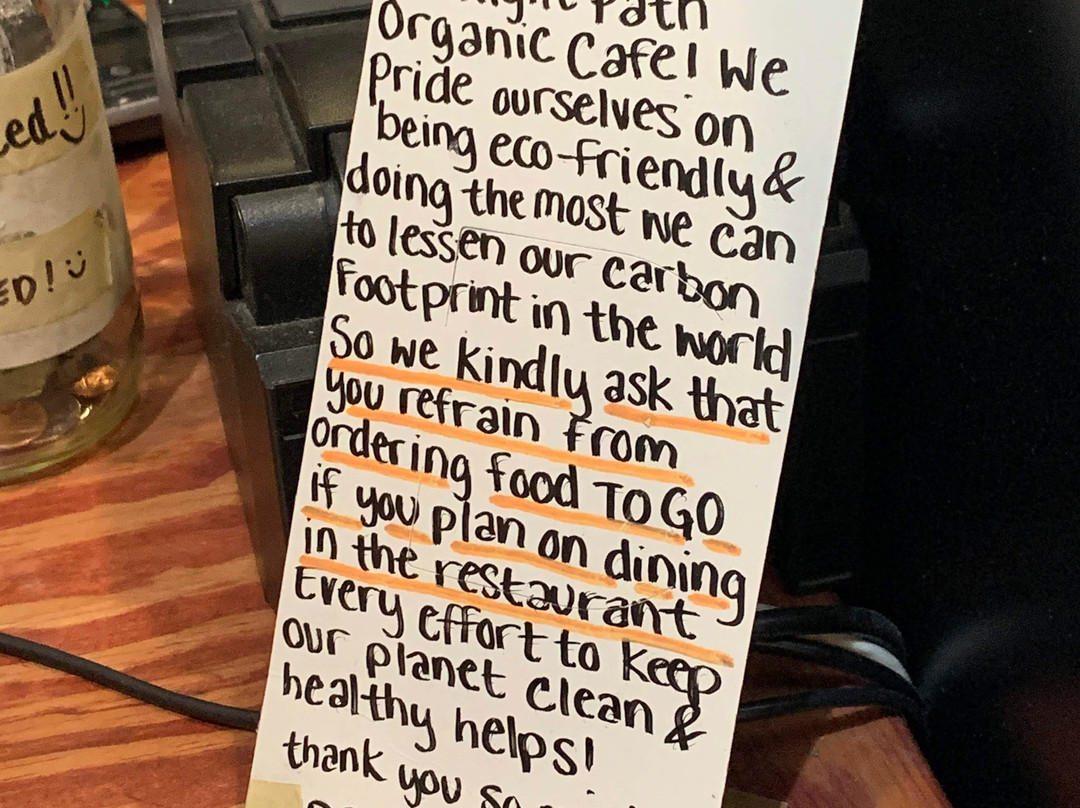 Path
Organic Cafe! We
Pride ourselves on
being eco-friendly &
doing the most we can
to lessen our carbon
footprint in the world
So we kindly ask that
you refrain from
ordering food TO GO
if you plan on dining
in the restaurant
Every effort to keep
our planet clean &
healthy helps!
thank you so